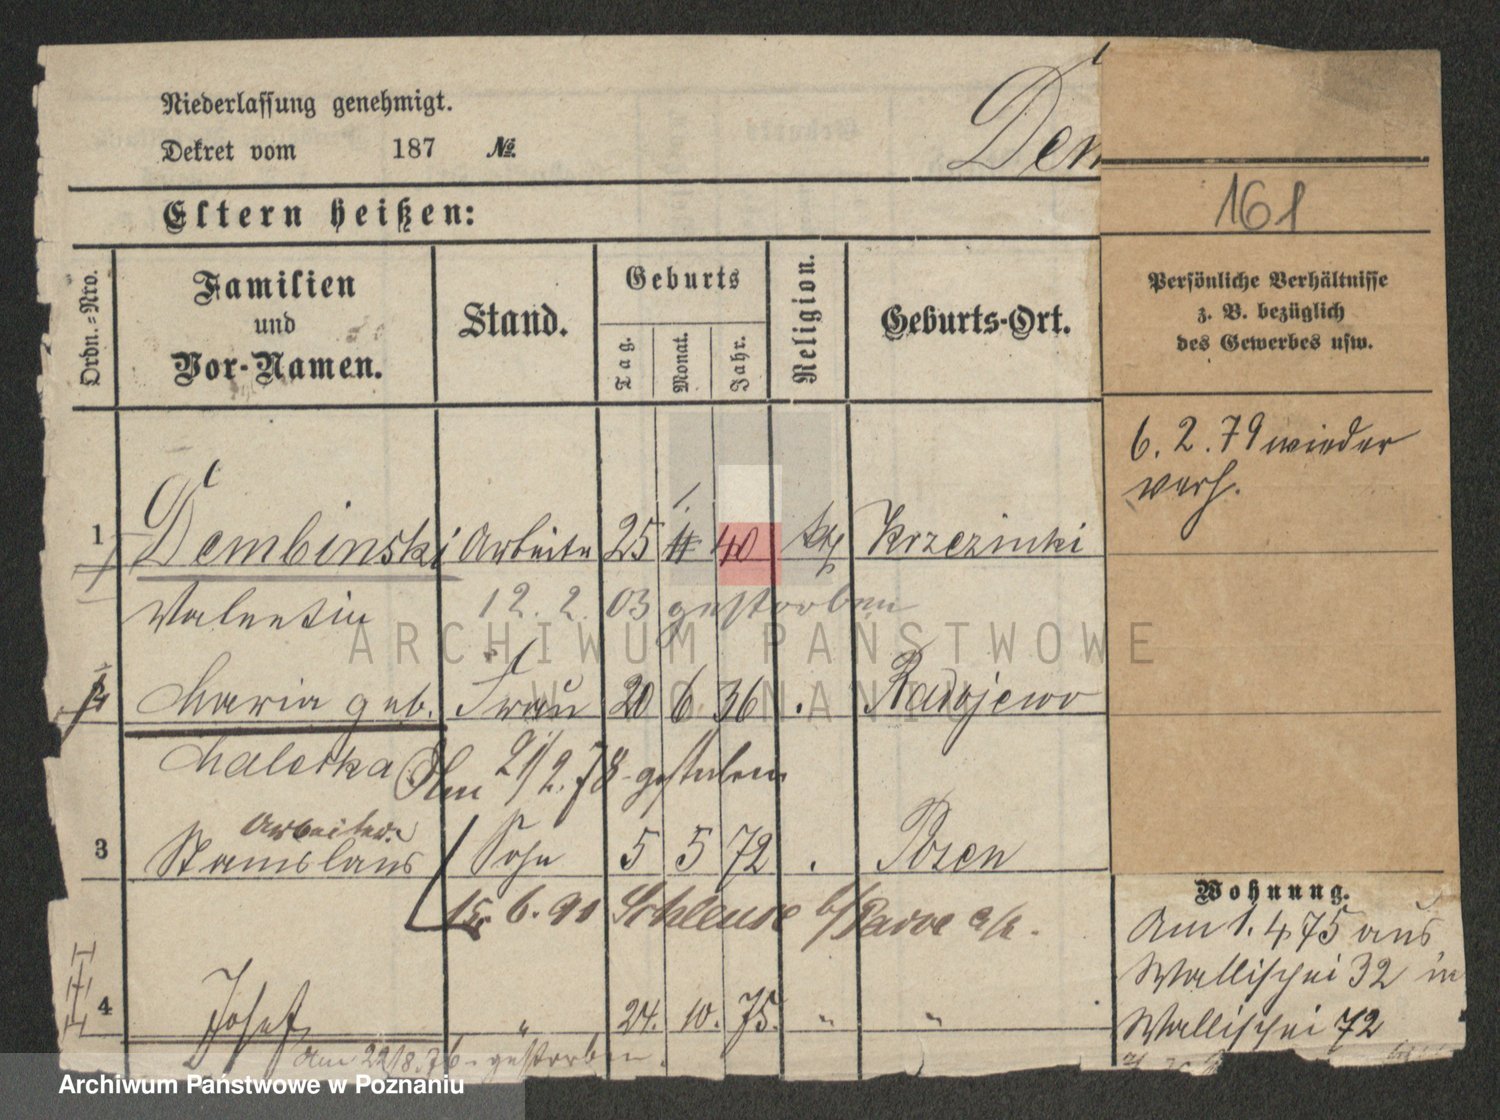 Niederlassung genehmigt.
Dekret vom 187 №
Dem
161
Eltern heißen:
Ordn.-Nro.
Familien und Vor-Namen.
Stand.
Geburts
Tag.
Monat.
Jahr.
Religion.
Geburts-Ort.
Persönliche Verhältnisse
z. B. bezüglich
des Gewerbes usw.
6. 2. 79 wieder
verh.
1 Dembinski Arbeiter 25 40 kth Krzezinki
Valentin 12. 2. 03 gestorben
Maria geb. Frau 20 6. 36 Radojewo
Maleska Am 21/2. 78 gestorben
Arbeiter
3 Stanislaus Sohn 5 5 72 Posen
15. 6. 91 Schleuse b/
4 Josef " 24. 10. 75. " "
Am 22/8. 76 gestorben.
Wohnung.
Am 1. 4 75 aus
Wallischei 32 in
Wallischei 72
ARCHIWUM PAŃSTWOWE
W POZNANIU
Archiwum Państwowe w Poznaniu